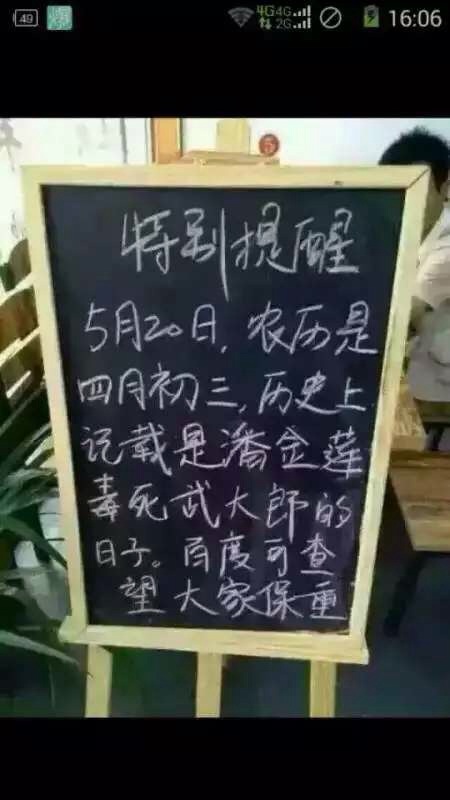 49 爆 4G 4G 2G 16:06
特别提醒
5月20日,农历是
四月初三,历史上
记载是潘金莲
毒死武大郎的
日子。百度可查
望大家保重